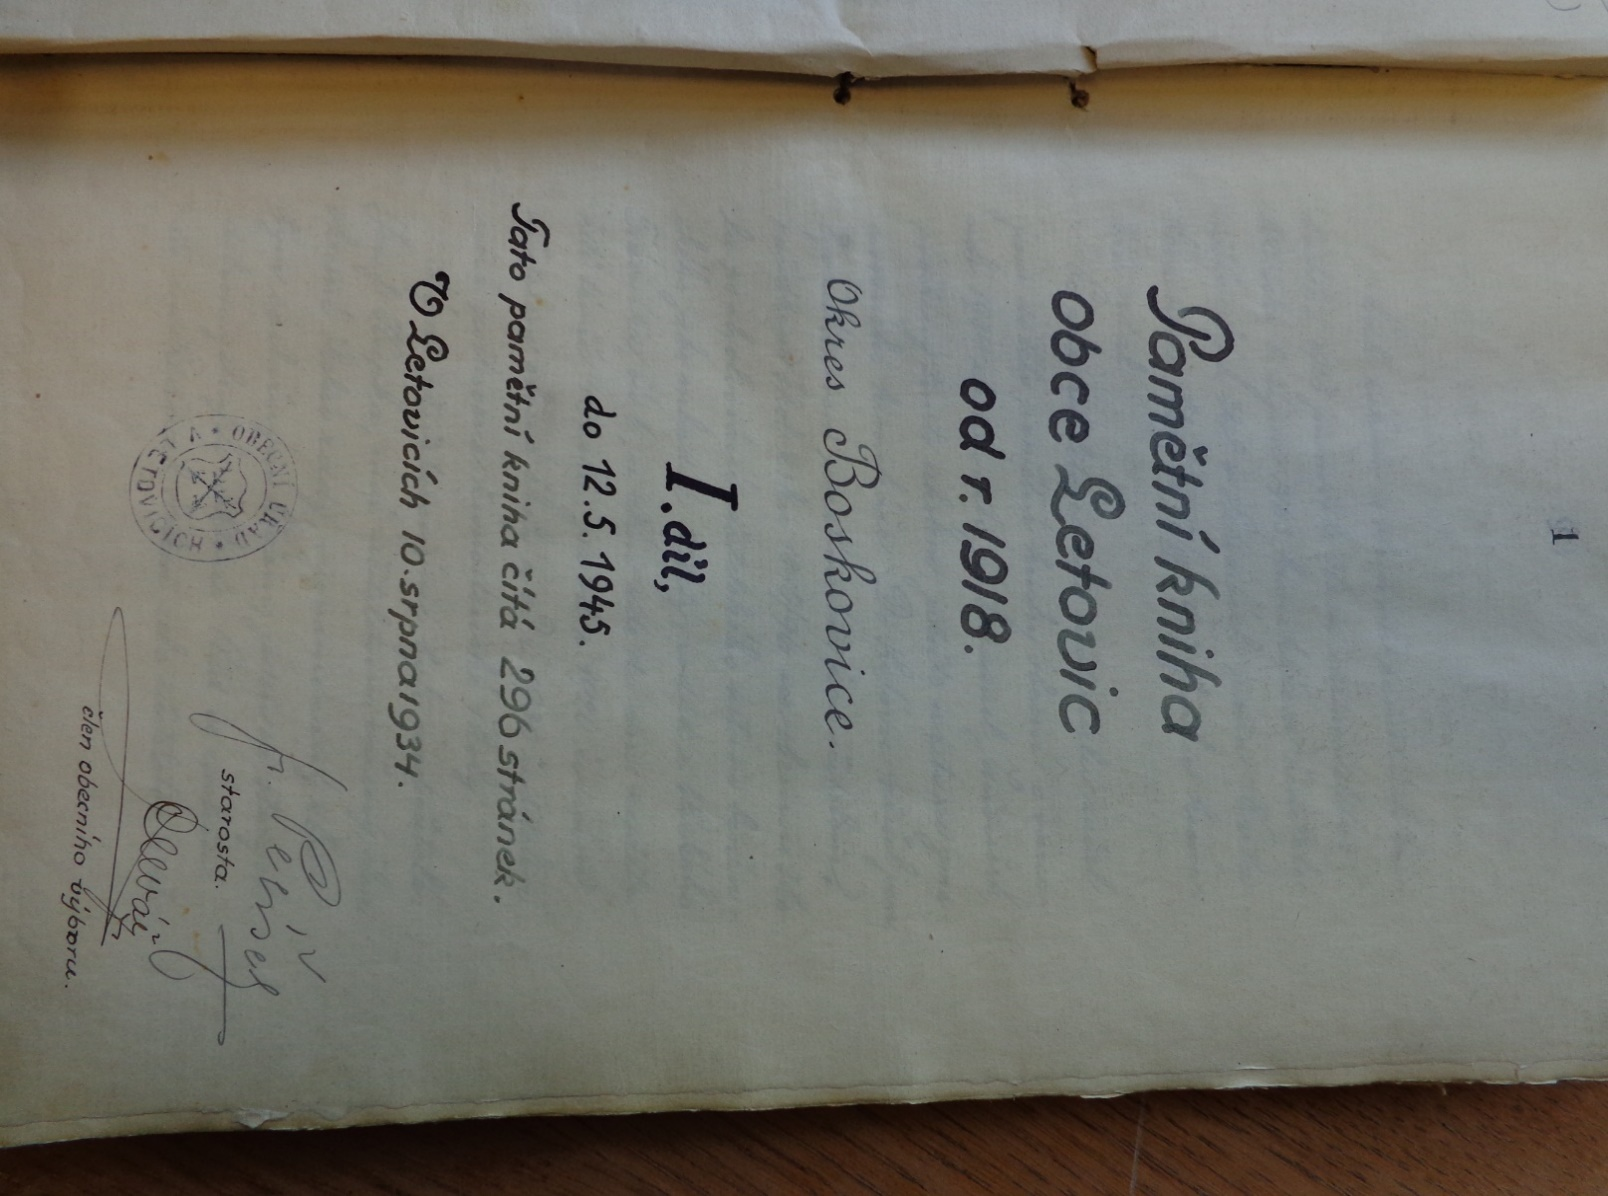 1
Pamětní kniha
obce Letovic
od r. 1918.
Okres Boskovice.
I. díl,
do 12. 5. 1945.
Tato pamětní kniha čítá 296 stránek.
V Letovicích 10. srpna 1934.
OBECNÍ ÚŘAD • V LETOVICÍCH •
starosta.
člen obecního výboru.